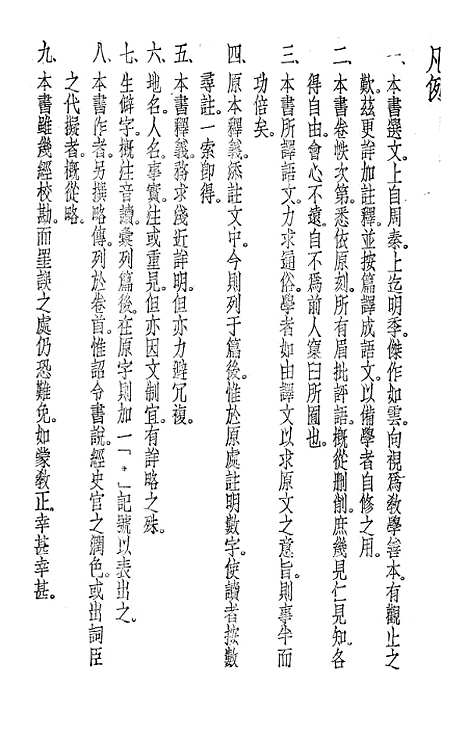 凡例
一、本書撰文上自周秦。上迄明季。傑作如雲。向視爲教學善本。有觀止之
歎。茲更詳加註釋。並按篇譯成語文。以備學者自修之用。
二、本書卷帙次第。悉依原刻。所有眉批評語。概從删削。庶幾見仁見知。各
得自由。會心不遠。自不爲前人窠臼所囿也。
三、本書所譯語文。力求通俗。學者如由譯文以求原文之意旨。則事半而
功倍矣。
四、原本釋義。添註文中。今則列于篇後。惟於原處註明數字。使讀者按數
尋註。一索即得。
五、本書釋義。務求淺近詳明。但亦力避冗複。
六、地名。人名。事實。注或重見。但亦因文制宜。有詳略之殊。
七、生僻字。概注音讀。彙列篇後。在原字則加一「*」記號以表出之。
八、本書作者。另撰略傳。列於卷首。惟詔令書說。經史官之潤色。或出詞臣
之代擬者。概從略。
九、本書雖幾經校勘。而罣誤之處。仍恐難免。如蒙教正。幸甚幸甚。